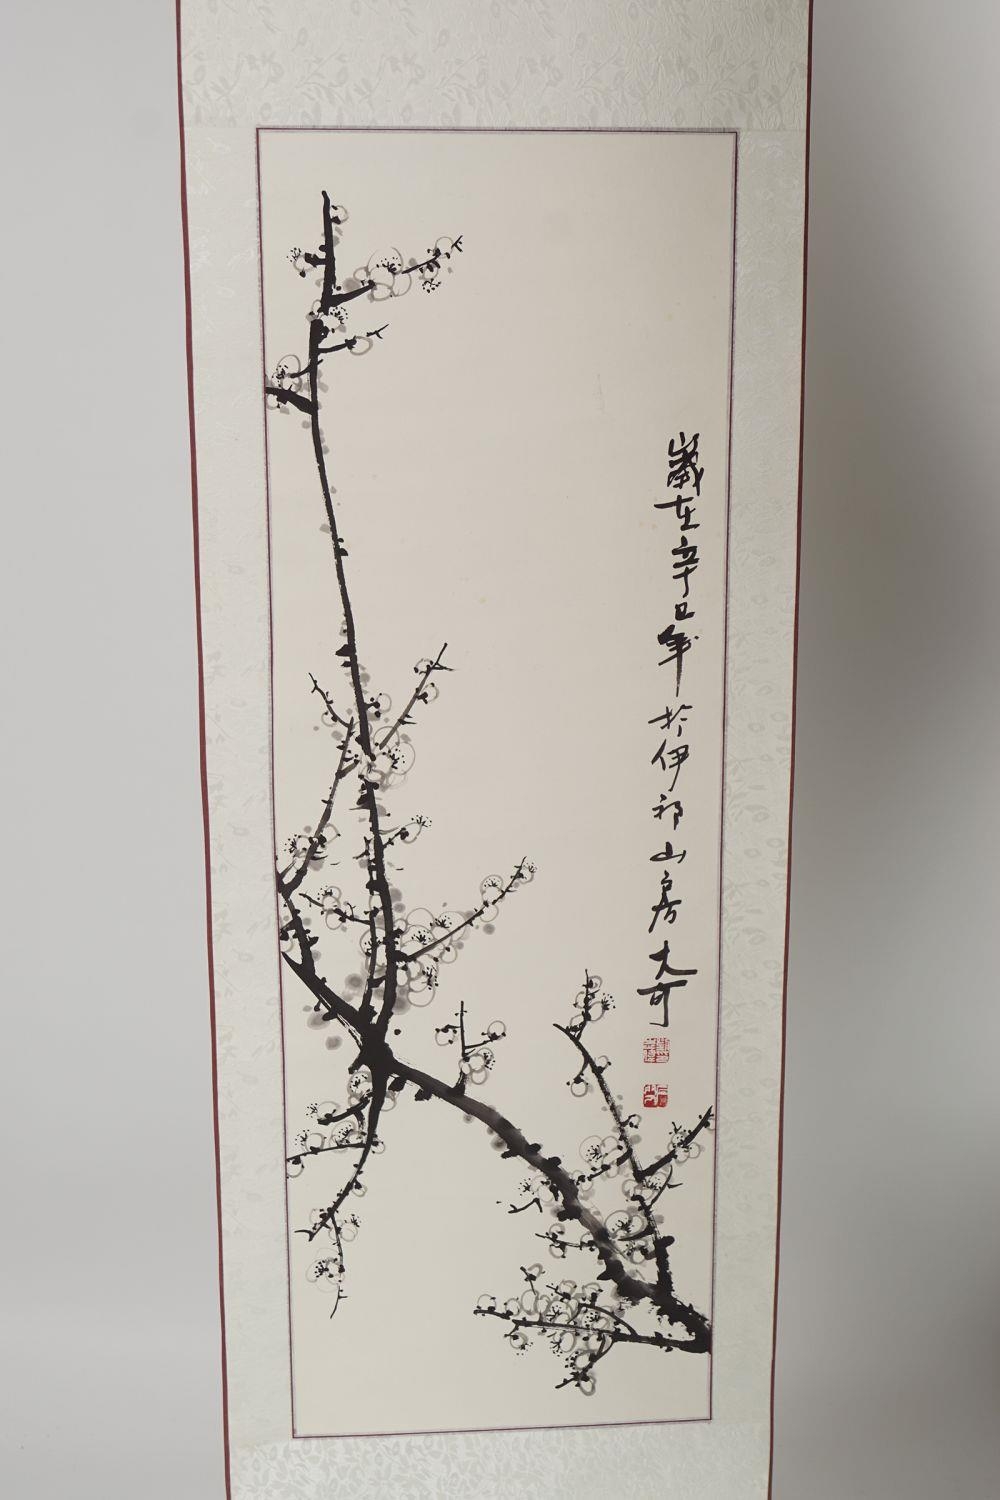 歲在辛巳年於伊祁山房大可